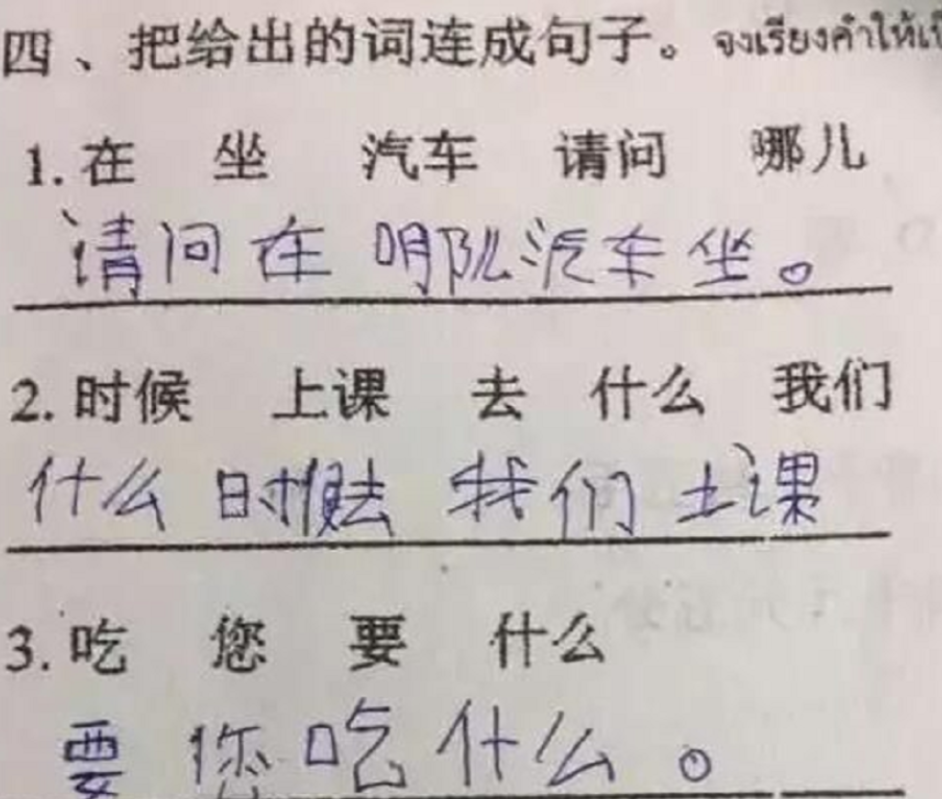 四、把给出的词连成句子。จงเรียงคำให้เ
1. 在 坐 汽车 请问 哪儿
请问 在 哪儿汽车 坐。
2. 时候 上课 去 什么 我们
什么 时候去 我们 上课
3. 吃 您 要 什么
要 您 吃 什么。